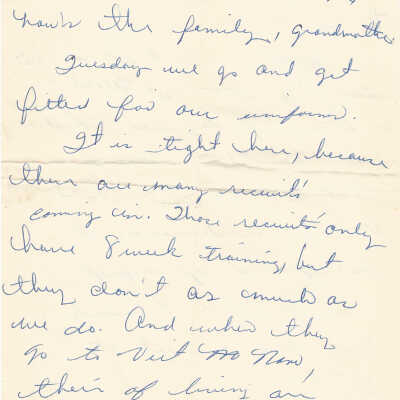 how's the family, grandmother
Tuesday we go and get
fitted for our uniform.
It is tight here, because
their are many recruits
coming in. Those recruits' only
have 8 week training, but
they don't as much as
we do. And when they
go to Viet Nam,
their of living on